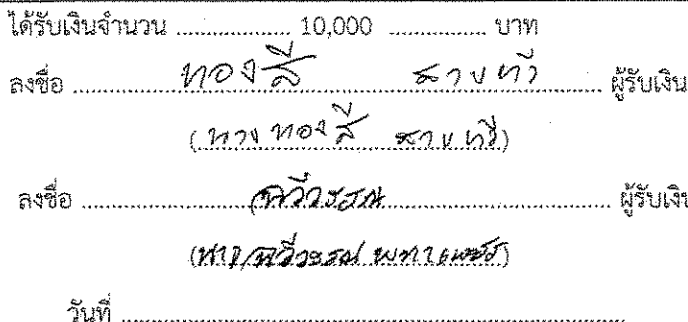 ได้รับเงินจำนวน ................. 10,000 ............... บาท
ลงชื่อ ทองสี สายทวี ผู้รับเงิน
(นาง ทองสี สายทวี)
ลงชื่อ ฉวีวรรณ ผู้รับเงิน
(นางฉวีวรรณ
วันที่ ................................................................................